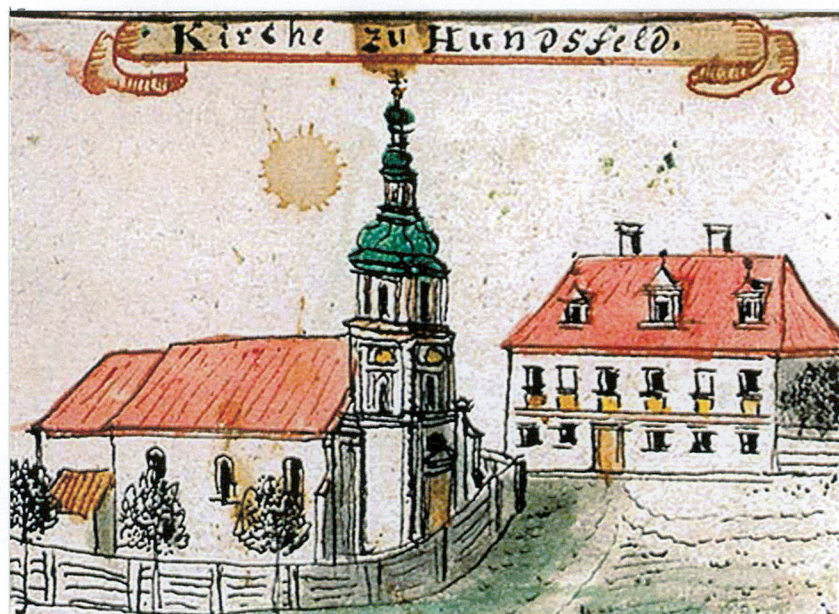 Kirche zu Hundsfeld.